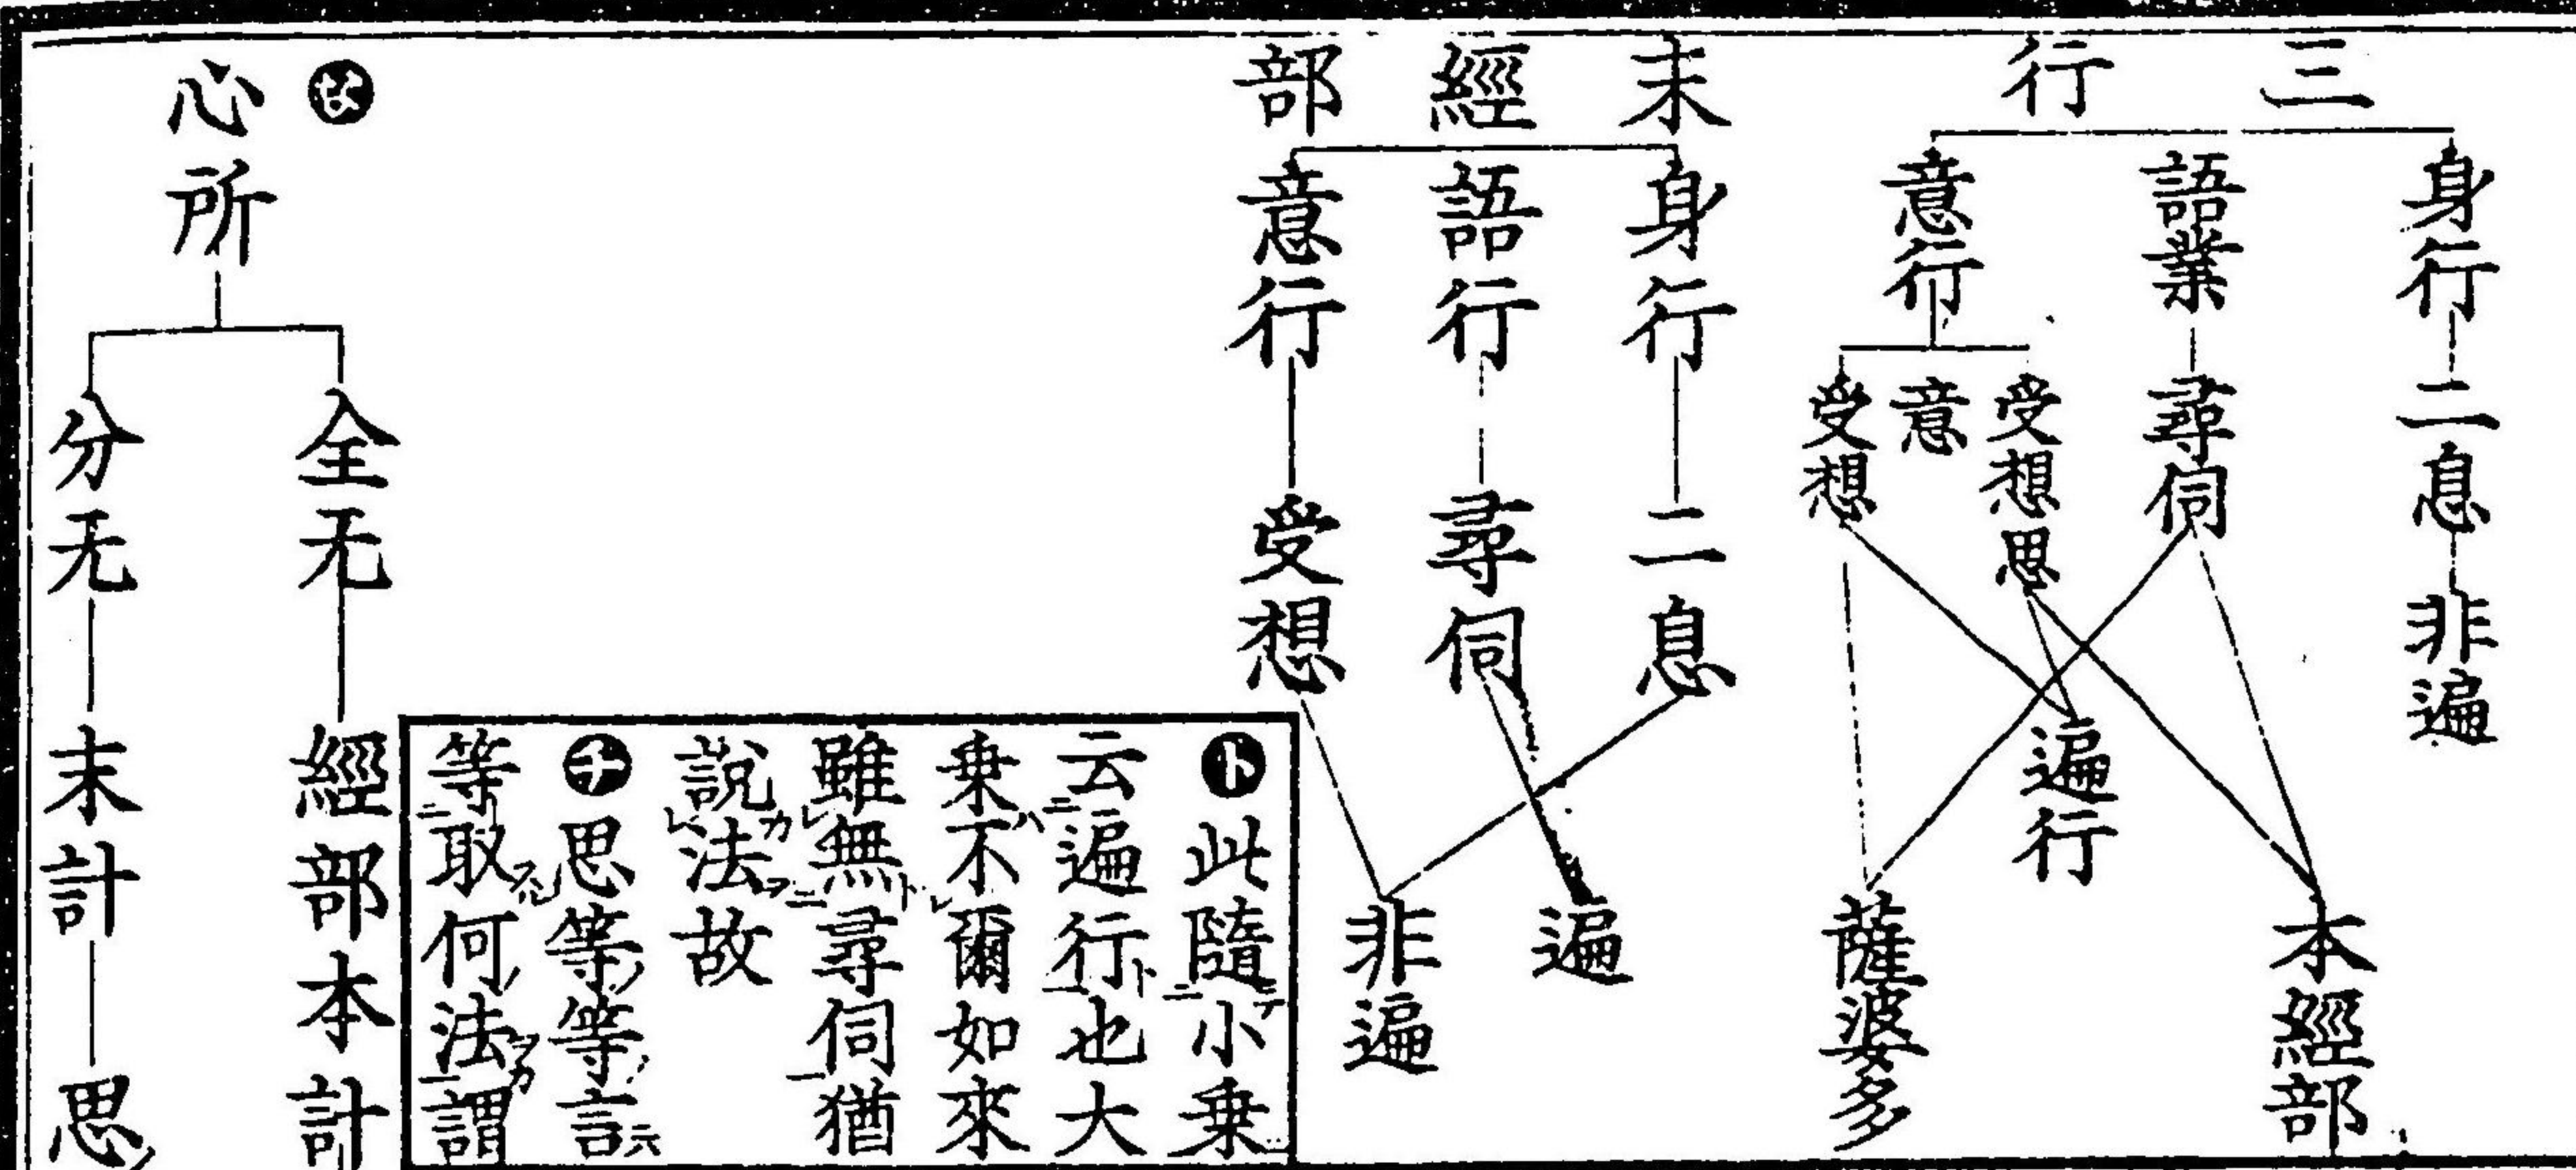 三行
身行 二息 非遍
語業 尋伺
意行
受想思
意
受想
遍行
本經部
薩婆多
末經部
身行 二息
語行 尋伺
意行 受想
遍
非遍
ト 此隨小乘
云遍行也大
乗不爾如來
雖無尋伺猶
說法故
チ 思等等言
等取何法謂
心所
全无 經部本計
分无 末計 思